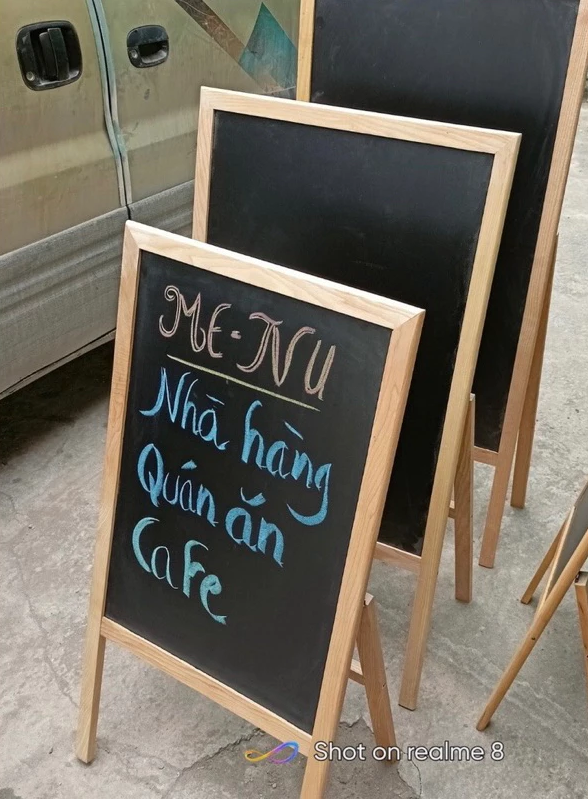 ME-NU
Nhà hàng
Quán ăn
Cafe
Shot on realme 8